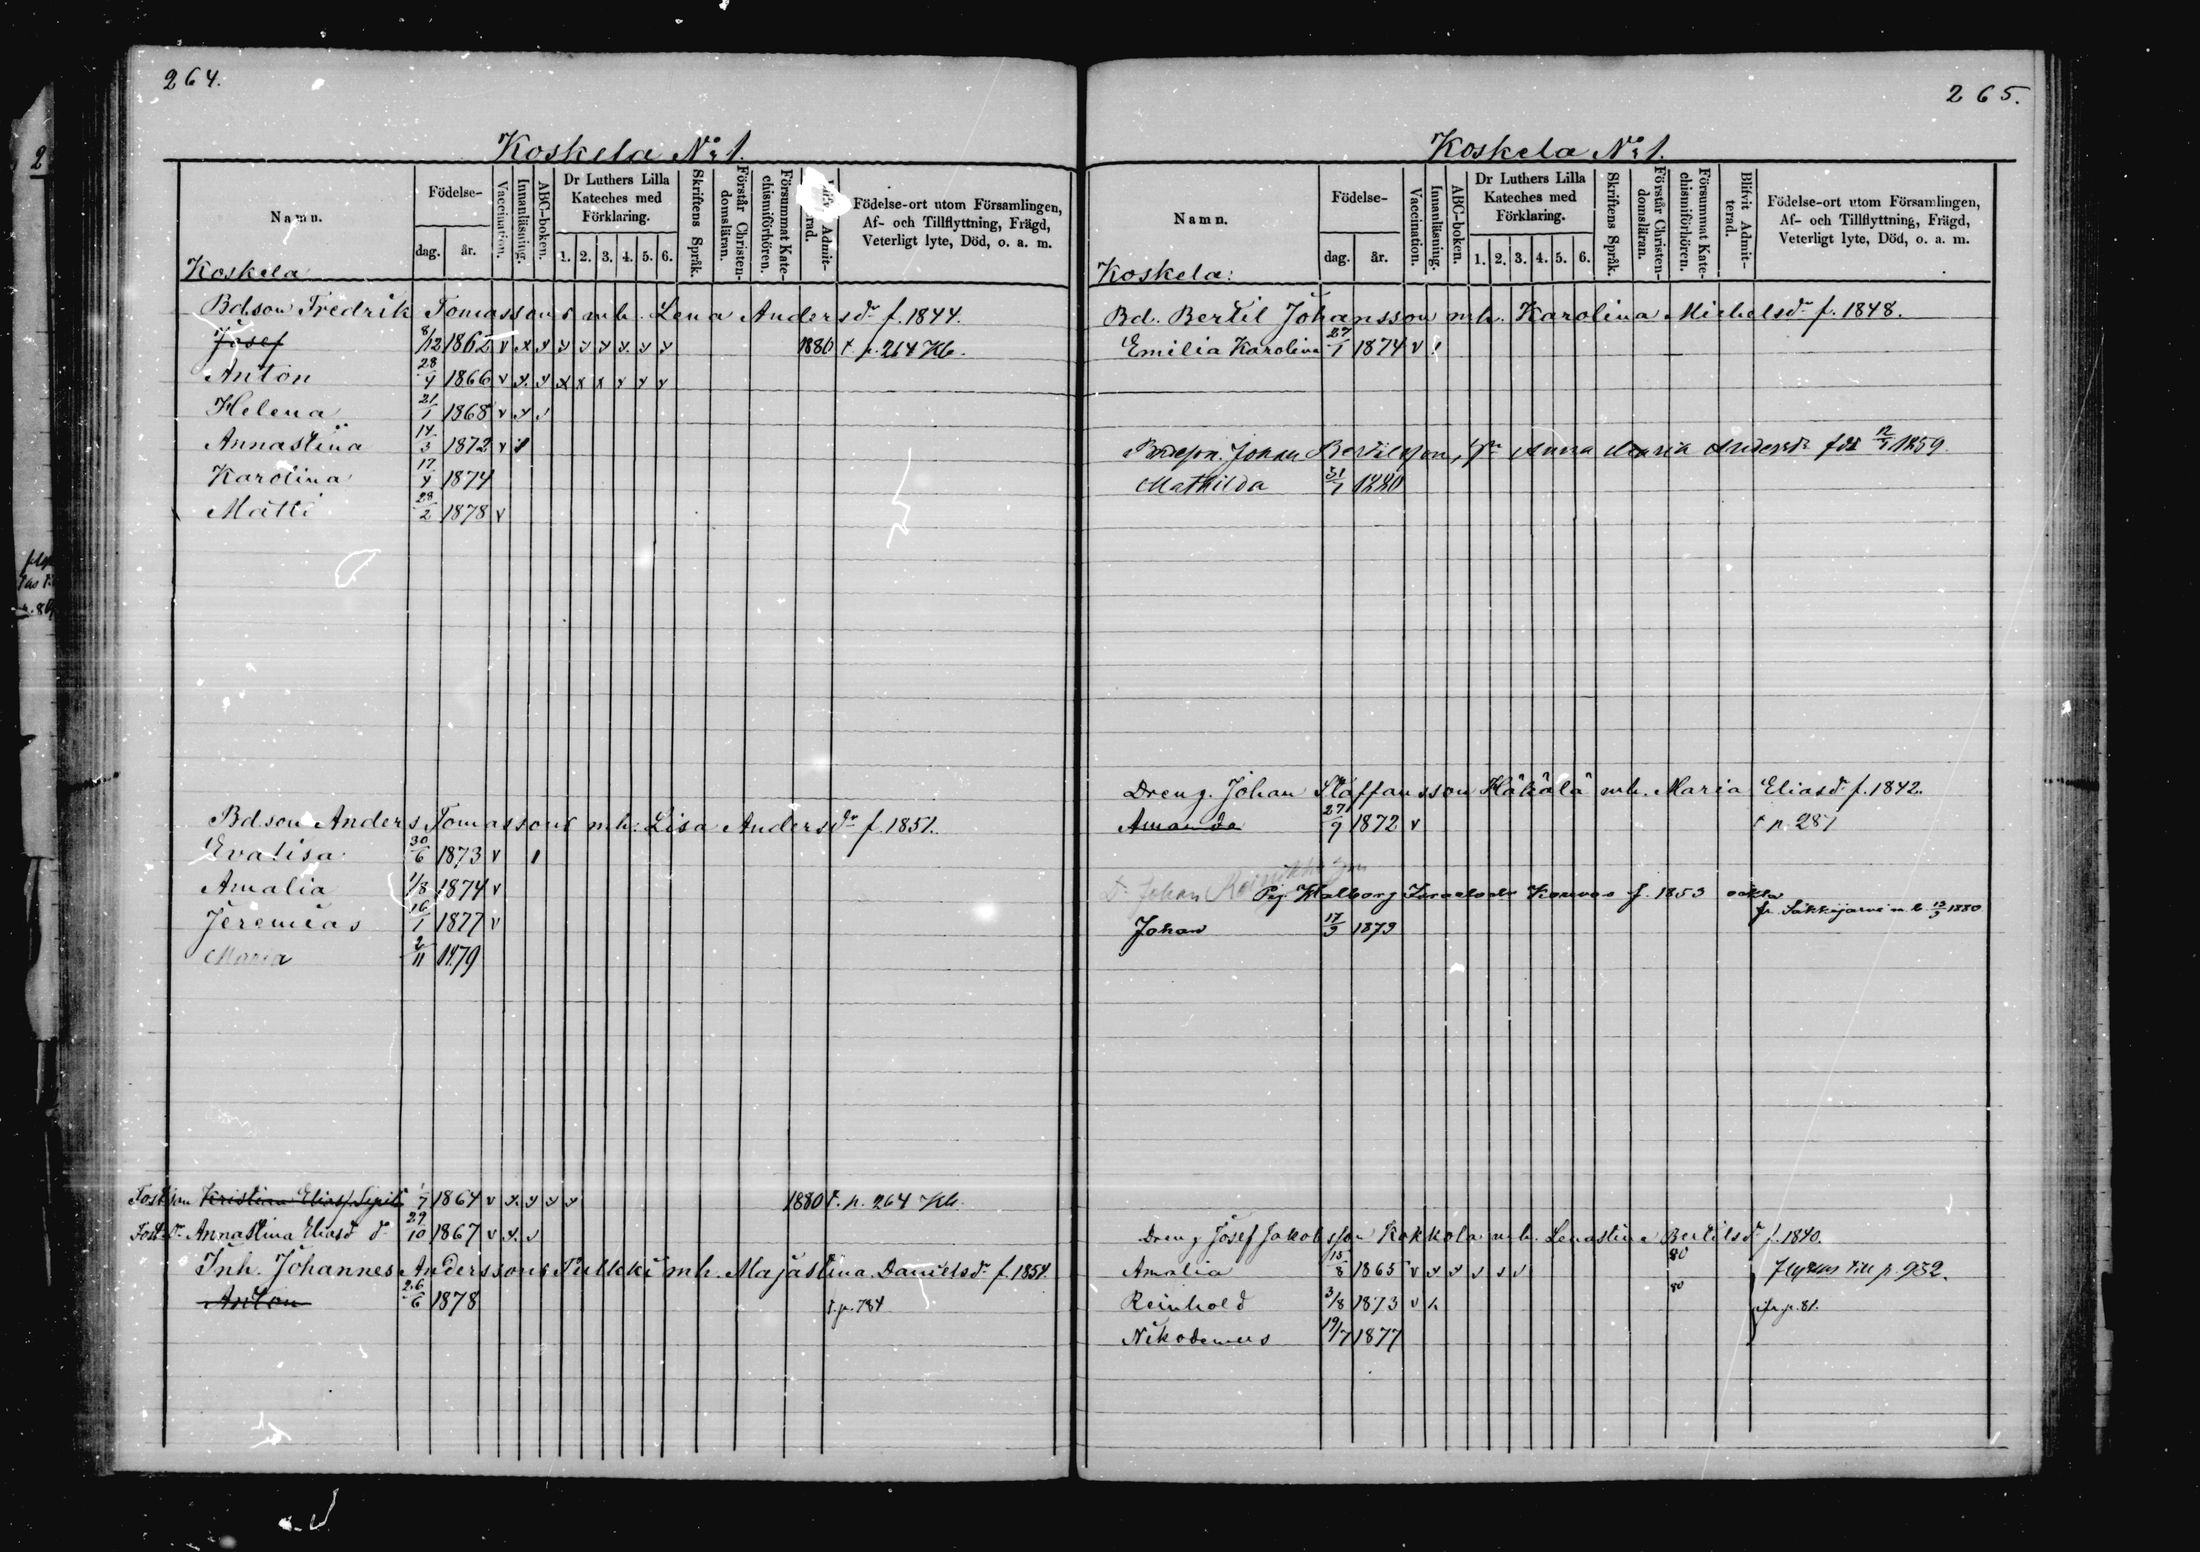 264.
Koskela No 1.
Namn.
Födelse-
dag.
år.
Vaccination.
Innanläsning.
ABC-boken.
Dr Luthers Lilla
Kateches med
Förklaring.
1. 2. 3. 4. 5. 6.
Skriftens Språk.
Förstår Christen-
domsläran.
Försummat Kate-
chismiförhören.
Admit-
terad.
Födelse-ort utom Församlingen,
Af- och Tillflyttning, Frägd,
Veterligt lyte, Död, o. a. m.
Koskela
Bdson Fredrik Tomassons mh. Lena Andersdr f. 1844.
Josef 8/12 1862 v x x x x x x x x 1880 t. p. 264 Kb.
Anton 28/4 1866 v x x x x x x x x
Helena 21/1 1868 v x v
Annastina 14/3 1872 v
Karolina 17/4 1874
Matti 28/2 1878 v
Bdson Anders Tomassons mh: Lisa Andersdr f. 1851.
Evalisa 30/6 1873 v
Amalia 1/8 1874 v
Jeremias 16/1 1877 v
Maria 2/11 1879
Kristian Eliass. 1864 v x x x x 1880 t. p. 264 Kb.
Fost.dr Annastina Eliasd 29/10 1867 v x v
Inh. Johannes Anderssons Pulkki mh. Majastina Danielsdr f. 1854.
Anton 26/6 1878 t. p. 784
265.
Koskela No 1.
Namn.
Födelse-
dag.
år.
Vaccination.
Innanläsning.
ABC-boken.
Dr Luthers Lilla
Kateches med
Förklaring.
1. 2. 3. 4. 5. 6.
Skriftens Språk.
Förstår Christen-
domsläran.
Försummat Kate-
chismiförhören.
Blifvit Admit-
terad.
Födelse-ort utom Församlingen,
Af- och Tillflyttning, Frägd,
Veterligt lyte, Död, o. a. m.
Koskela:
Bd. Bertil Johansson mh. Karolina Michelsdr f. 1848.
Emilia Karolina 27/1 1874 v
Johan Bertilsson, Anna Maria Andersdr 1859.
Mathilda 31/1 1880
Dreng. Johan Staffansson Häkälä mh. Maria Eliasdr f. 1842.
Amanda 27/9 1872 v t p. 287
D. Johan
Pig. Walborg f. 1853
fr. Säkkijärvi 1880
Johan 17/3 1879
Dreng Josef Jakobsson Kokkola mh. Lenastina Bertilsdr f. 1840.
Amalia 15/8 1865 v x x x x x 80 flyttas till p. 932.
Reinhold 3/8 1873 v 80 p. 81.
Nikodemus 19/7 1877